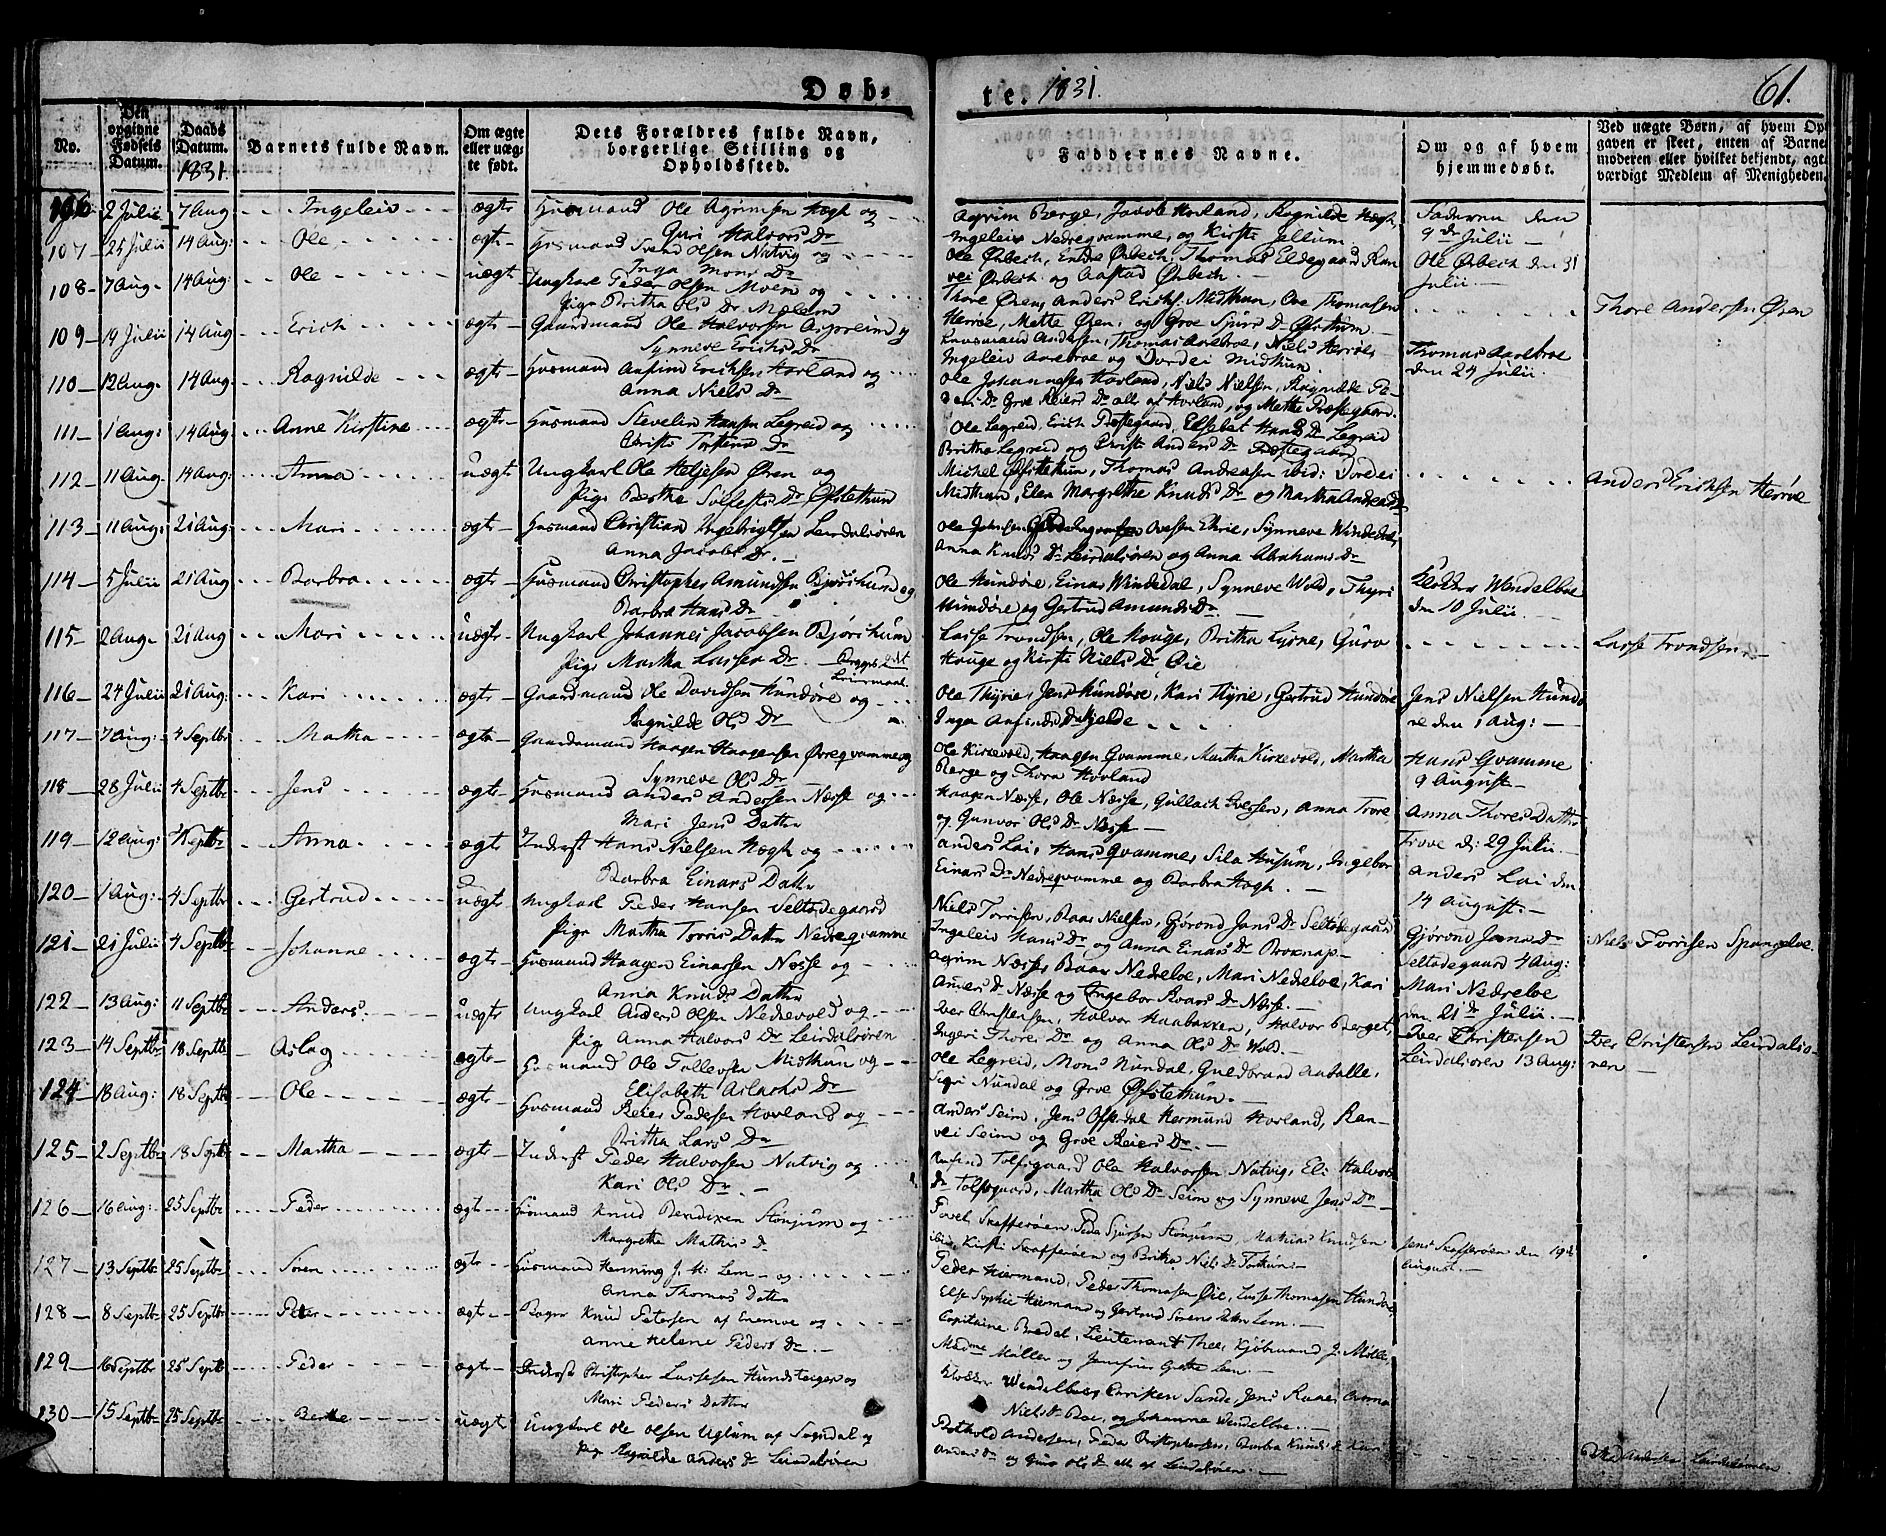 Døb-
te. 1831.
61.
No.
Den opgivne Fødsels Datum.
Daabs Datum. 1831
Barnets fulde Navn.
Om ægte eller uægte født.
Dets Forældres fulde Navn, borgerlige Stilling og Opholdssted.
Faddernes Navne.
Om og af hvem hjemmedøbt.
Ved uægte Børn, af hvem Opgaven er skeet, enten af Barnemoderen eller hvilket bekjendt, agtværdigt Medlem af Menigheden.
106 2 Julii 7 Aug Ingeleiv ægte Huusmand Ole Agrimsen Hægh og
Guri Halvors Dr
Agrim Berge, Jacob Hovland, Ragnilde Hægh,
Ingeleiv Nedreqvamme, og Kirsti Jellum
Faderen den
9de Julii
107 25 Julii 14 Aug: Ole ægte Huusmand Svend Olsen Natvig og
Inga Mons Dr
Ole Ørbech, Endre Ørbech, Thomas Eldegaard Ran-
vei Ørbech og Aastad Ørbech.
Ole Ørbech den 31
Julii
108 7 Aug 14 Aug: Ole uægte Ungkarl Peder Olsen Moen og
Pige Britha Ols Dr Molem
Thore Øren, Anders Erichs: Midthun, Ove Thomasen
Herroe, Mette Øren, og Groe Sjurs Dr Øfstethun
Thore Andersen Øren
109 19 Julii 14 Aug Erich ægte Gaardmand Ole Halvorsen Aspereim og
Synneve Erichs Dr
Thomas Aarebroe, Niels Herroe,
Ingeleiv Aarebroe og Dordei Midthun
Thomas Aarebroe
den 24 Julii
110 12 Aug 14 Aug Ragnilde ægte Huusmand Anfind Erichsen Hovland og
Anna Niels Dr
Ole Johannesen Hovland, Niels Nielsen, Ragnilde Pe-
ders Dr Groe Reiers Dr alle af Hovland, og Mette Præstegaard
111 1 Aug: 14 Aug: Anne Kirstine ægte Huusmand Stevelin Hansen Legreid og
Christi Tostens Dr
Ole Legreid, Erich Præstegaard, Elsebet Hans Dr Legreid
Britha Legreid og Christi Anders Dr Præstegaard
112 11 Aug 14 Aug: Anna uægte Ungkarl Ole Heljesen Øren og
Pige Bertha Sølfests Dr Øfstethun
Michel Øfstethun, Thomas Andreasen ibid: Dordei
Midthun, Elen Margrethe Knuds Dr og Martha Anders Dr
Anders Erichsen Herroe
113 11 Aug: 21 Aug: Mari ægte Huusmand Christian Ingebrigtsen Leirdalsøren
Anna Jacobs Dr.
Ole Johnsen Ovesen Ekrie, Synneve Windedal,
Anna Knuds Dr Leirdalsøren og Anna Abrahams Dr
114 5 Julii 21 Aug Barbra ægte Huusmand Christopher Amundsen Bjørkum og
Barbra Hans Dr
Ole Hundøre, Einar Windedal, Synneve Wold, Thyri
Hundøre og Gertrud Amunds Dr
Klokker Wendelboe
den 10 Julii
115 2 Aug 21 Aug Mari uægte Ungkarl Johannes Jacobsen Bjørkum
Pige Martha Lasses Dr.
Lasse Trondsen, Ole Houge, Britha Lysne, Guro
Houge og Kirsti Niels Dr Øie
Lasse Trondsen
116 24 Julii 21 Aug: Kari ægte Gaardmand Ole Davidsen Hundøre og
Ragnilde Ols Dr
Ole Thyrie, Jens Hundøre, Kari Thyrie, Gertrud Hundøre
Inga Anfinds Dr Kjelde
Jens Nielsen Hundø-
re den 1 Aug:
117 7 Aug: 4 Septbr Martha ægte Gaardmand Haagen Haagensen Øvreqvamme og
Synneve Ols Dr
Ole Kirkevold, Haagen Gvamme, Martha Kirkevold, Martha
Berge og Thora Hovland
Hans Gvamme
9 August
118 28 Julii 4 Septbr Jens ægte Huusmand Anders Andersen Næsse og
Mari Jens Datter
Haagen Næsse, Ole Næsse, Gullach Iversen, Anna Trove
og Gunvor Ols Dr Næsse
Anna Thores Datter
Trove d: 29 Julii
119 12 Aug: 4 Septbr Anna ægte Inderst Hans Nielsen Hægh og
Barbra Einars Datter
Anders Lai, Hans Gvamme, Sila Husum, Ingebor
Einars Dr Nedreqvamme og Barbra Hægh.
Anders Lai den
14 August
120 1 Aug: 4 Septbr Gertrud uægte Ungkarl Peder Hansen Seltodegaard
Pige Martha Torris Datter Nedreqvamme
Niels Torrisen, Baar Nielsen, Gjørond Jens Dr Seltodegaard
Ingeleiv Hans Dr og Anna Einars Dr Broknap
Gjørond Jens Dr
Seltodegaard 4 Aug:
Niels Torrisen Spangeloe
121 21 Julii 4 Septbr Johanne ægte Huusmand Haagen Einarsen Næsse og
Anna Knuds Datter
Agrim Næsse, Baar Nedreloe, Mari Nedreloe, Kari
Anders Dr Næsse og Ingebor Baars Dr Næsse
Mari Nedreloe
den 21de Julii
122 13 Aug: 11 Septbr Anders uægte Ungkarl Anders Olsen Nedrevold og
Pige Anna Halvors Dr Leirdalsøren
Iver Christensen, Halvor Haabakken, Halvor Berget,
Ingeri Thores Dr og Anna Ols Dr Wold.
Iver Christensen
Leirdalsøren 13 Aug:
Iver Christensen Leirdalsø-
ren
123 14 Septbr 18 Septbr Aslag ægte Huusmand Ole Tollevsen Midthun og
Elisabeth Aslachs Dr
Ole Legreid, Mons Nundal, Guldbrand Aabølle,
Sigri Nundal og Groe Øfstethun
124 18 Aug: 18 Septbr Ole ægte Huusmand Reier Pedersen Hovland og
Britha Lars Dr
Anders Seim, Jens Offerdal Hermund Hovland, Ran-
vei Seim og Groe Reiers Dr
125 2 Septbr 18 Septbr Martha ægte Inderst Peder Halvorsen Natvig og
Kari Ols Dr
Anfind Tolfsgaard Ole Halvorsen Natvig, Eli Halvors
Dr Tolfsgaard, Martha Ols Dr Seim og Synneve Jens Dr
126 16 Aug: 25 Septbr Peder ægte Huusmand Knud Bendixen Stønjum og
Margrethe Mathis Dr
Povel Skafferøen, Peder Sjursen Stønjum, Mathias Knudsen
ibid, Kirsti Skafferøen og Britha Niels Dr Torthun
Jens Skafferøen den 19de
August
127 13 Septbr 25 Septbr Søren ægte Huusmand Henning J. H. Lem og
Anna Thomas Datter
Peder Hiermand, Peder Thomasen Øie, Lasse Thomasen Hundøre
Else Sophie Hiermand og Gertrud Sørens Datter Lem
128 8 Septbr 25 Septbr Peder ægte Bager Knud Petersen af Enemoe og
Anne Helene Peders Dr
Capitaine Bredal, Lieutenant Thee, Kjøbmand J. Møller
Madme Møller og Jomfrue Grethe Lem
129 16 Septbr 25 Septbr Peder ægte Inderst Christopher Lassesen Hundsteiger og
Mari Peders Datter
Klokker Wendelboe, Henriken Sande, Jens Raae, Anna
Niels Dr Boe, og Johanne Wendelboe
130 15 Septbr 25 Septbr Berthe uægte Ungkarl Ole Olsen Uglum af Sogndal og
Pige Ragnilde Anders Dr Leirdalsøren
Bothold Andersen, Peder Christophersen, Barbra Knuds Dr Kari
Anders Dr og Guro Ols Dr alle af Leirdalsøren
Andersen Leirdalsøren